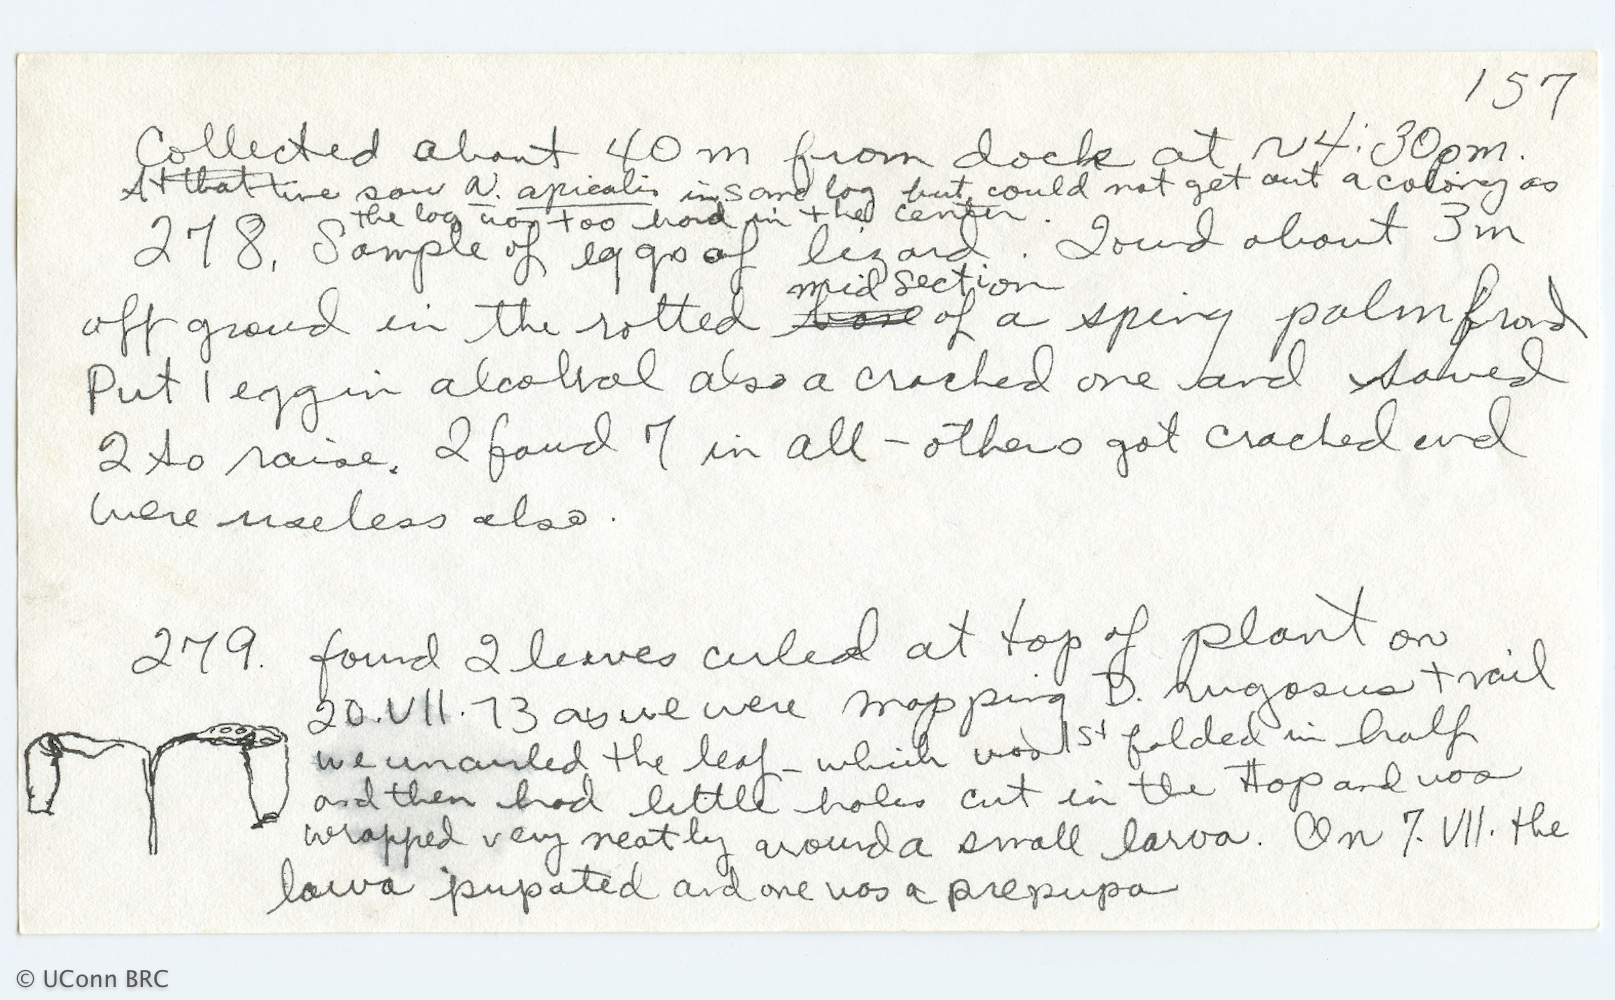 157
Collected about 40 m from dock at ~4:30pm.
At that time saw N. apicalis in same log but could not get out a colony as
the log was too hard in the center.
278. Sample of eggs of lizard. Found about 3m
mid section
off ground in the rotted base of a spiny palm frond
Put 1 egg in alcohol also a cracked one and saved
2 to raise. I found 7 in all – others got cracked and
were useless also.
279. found 2 leaves curled at top of plant on
20.VII.73 as we were mapping D. rugosus trail
we uncurled the leaf – which was 1st folded in half
and then had little holes cut in the top and was
wrapped very neatly around a small larva. On 7.VII. the
larva pupated and one was a prepupa
© UConn BRC